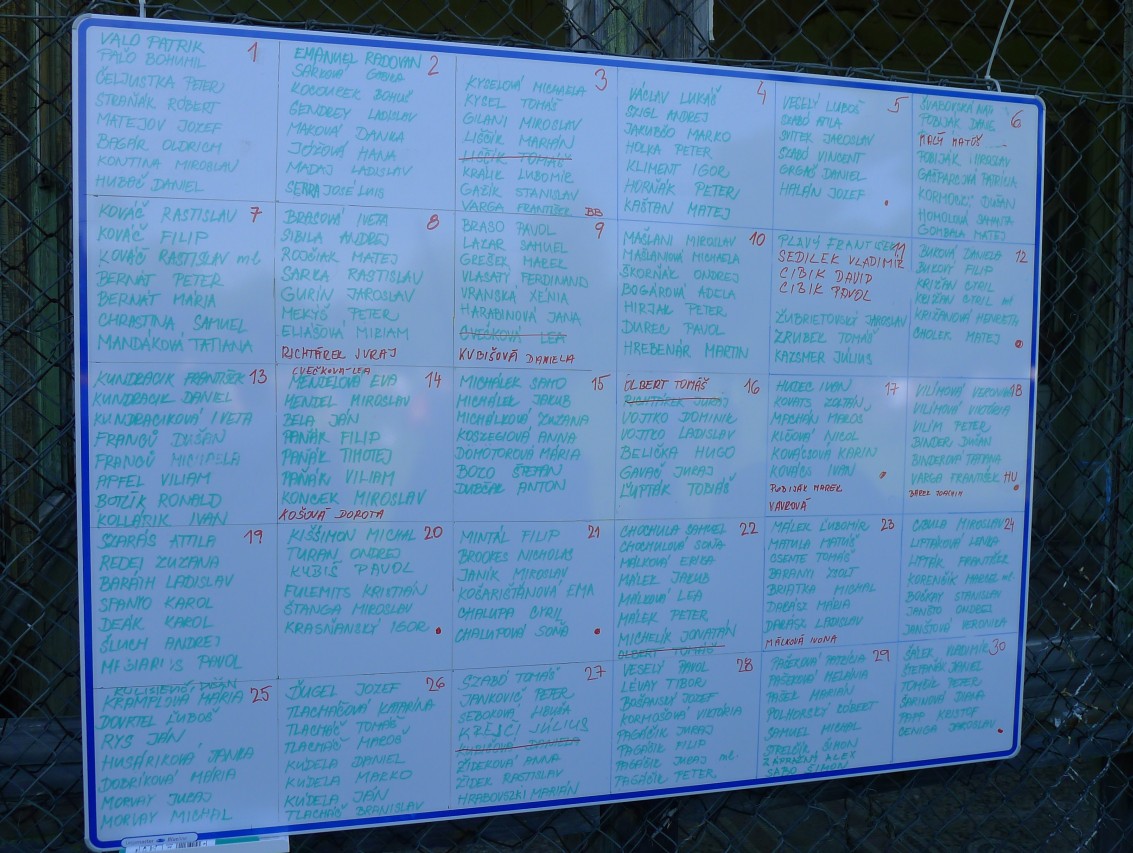 VALO PATRIK 1
PAĽO BOHUMIL
ČELJUSTKA PETER
STRAŇÁK RÓBERT
MATEJOV JOZEF
BAGÁR OLDRICH
KONTINA MIROSLAV
HUBAČ DANIEL
EMANUEL RADOVAN 2
SARKOVÁ
KOCOUREK BOHUŠ
GENDREY LADISLAV
MAKOVÁ DANKA
HANA
MADAJ LADISLAV
SERRA JOSÉ LUIS
KYSELOVÁ MICHAELA 3
KYSEL TOMÁŠ
GILANI MIROSLAV
LIŠČÍK MARIÁN
LIŠČÍK TOMÁŠ
KRÁLIK ĽUBOMÍR
GAŽÍK STANISLAV
VARGA FRANTIŠEK BB
VÁCLAV LUKÁŠ 4
ŠKIGL ANDREJ
JAKUBÍO MARKO
HOLKA PETER
KLIMENT IGOR
HORŇÁK PETER
KAŠTAN MATEJ
VESELÝ ĽUBOŠ 5
SZABÓ ATILA
SVITEK JAROSLAV
SZABÓ VINCENT
GRGAŠ DANIEL
HALÁN JOZEF
6
POBIJAK DANIŠ
MALÝ MATÚŠ
POBIJAK MIROSLAV
GAŠPARCOVÁ PATRÍCIA
DUŠAN
HOMOLOVÁ
GOMBALA MATEJ
KOVÁČ RASTISLAV 7
KOVÁČ FILIP
KOVÁČ RASTISLAV ml.
BERNÁT PETER
BERNÁT MÁRIA
CHRASTINA SAMUEL
MANDÁKOVÁ TATIANA
BRASOVÁ IVETA 8
SIBILA ANDREJ
RODBIAK MATEJ
SARKA RASTISLAV
GURÍN JAROSLAV
MEKYŠ PETER
ELIAŠOVÁ MIRIAM
RICHTÁREK JURAJ
BRAŠO PAVOL 9
LAZAR SAMUEL
GREŠEK MAREK
VLASATÝ FERDINAND
VRANSKÁ XÉNIA
HARABINOVÁ JANA
CVEČKOVÁ LEA
KUBIŠOVÁ DANIELA
MAŠLANI MIROSLAV 10
MAŠLANIOVÁ MICHAELA
ŠKORŇÁK ONDREJ
BOGÁROVÁ ADELA
HIRJAK PETER
DUREC PAVOL
HREBENÁR MARTIN
PLAVÝ FRANTIŠEK 11
SEDILEK VLADIMÍR
CIBIK DAVID
CIBIK PAVOL
ŽUBRIETOVSKÝ JAROSLAV
ZRUBEC TOMÁŠ
KAZSMER JÚLIUS
BUKOVÁ DANIELA 12
BUKOVÝ FILIP
KRIŽAN CYRIL
KRIŽAN CYRIL ml.
KRIŽANOVÁ HENRIETA
CHOLEK MATEJ
KUNDRACIK FRANTIŠEK 13
KUNDRACIK DANIEL
KUNDRACIKOVÁ IVETA
FRANGÚ DUŠAN
FRANGÚ MICHAELA
APFEL VILIAM
BOTLÍK RONALD
KOLLÁRIK IVAN
CVEČKOVÁ LEA
MENDELOVÁ EVA 14
MENDEL MIROSLAV
ZELA JÁN
PAŇÁK FILIP
PAŇÁK TIHOTEJ
PAŇÁK VILIAM
KONCEK MIROSLAV
KOŠOVÁ DOROTA
MICHÁLEK SAMO 15
MICHÁLEK JAKUB
MICHÁLKOVÁ ZUZANA
KOSZEGIOVÁ ANNA
DOHOTOROVÁ MÁRIA
BOZO ŠTEFAN
DUBČAK ANTON
OLBERT TOMÁŠ 16
RICHTÁREK JURAJ
VOJTKO DOMINIK
VOJTKO LADISLAV
BELIČKA HUGO
GAVAČ JURAJ
ĽUPTÁK TOBIÁŠ
HUDEC IVAN 17
KOVATS ZOLTÁN
MACHÁN MAROŠ
KLČOVÁ NICOL
KOVÁCSOVÁ KARIN
KOVÁCS IVAN
POBIJAK MAREK
VAVROVÁ
VILÍMOVÁ VERONIKA 18
VILÍMOVÁ VIKTÓRIA
VILÍM PETER
BINDER DUŠAN
BINDEROVÁ TATIANA
VARGA FRANTIŠEK HU
BAREK JOACHIM
SZARÁS ATTILA 19
REDEJ ZUZANA
BARÁTH LADISLAV
SPANYO KAROL
DEÁK KAROL
ŠLUCH ANDREJ
PAVOL
KIŠŠIMON MICHAL 20
TURAN ONDREJ
KUBIŠ PAVOL
FULEMITS KRISTIÁN
ŠTANGA MIROSLAV
KRASŇANSKÝ IGOR
MINTÁL FILIP 21
BROOKES NICHOLAS
JANÍK MIROSLAV
KOŠARIŠŤANOVÁ EMA
CHALUPA CYRIL
CHALUPOVÁ SOŇA
CHOCHULA SAMUEL 22
CHOCHULOVÁ SOŇA
MÁLKOVÁ ERIKA
MÁLEK JAKUB
MÁLKOVÁ LEA
MÁLEK PETER
MICHELÍK JONATÁN
OLBERT TOMÁŠ
MÁLEK ĽUBOMÍR 23
MATULA MATÚŠ
OSENTE TOMÁŠ
BARANYI ZSOLT
BRIATKA MICHAL
DARÁSZ MÁRIA
DARÁSZ LADISLAV
MÁLKOVÁ IVONA
CIBULA MIROSLAV 24
LIPTÁKOVÁ LENKA
LIPTÁK FRANTIŠEK
KORENČIAK MARCEL ml.
BOŠKAY STANISLAV
JANŠTO ONDREJ
JANŠTOVÁ VERONIKA
KULIŠEVIČ DUŠAN
KRAMPLOVÁ MÁRIA 25
DOVRTEL ĽUBOŠ
RYS JÁN
HUSÁRIKOVÁ JANKA
DOBRÍKOVÁ MÁRIA
MORVAY JURAJ
MORVAY MICHAL
ĎUGEL JOZEF 26
TLACHAČOVÁ KATARÍNA
TLACHAČ TOMÁŠ
TLACHAČ MAROŠ
KUDELA DANIEL
KUDELA MARKO
KUDELA JÁN
TLACHAČ BRANISLAV
SZABÓ TOMÁŠ 27
JANKOVIČ PETER
SEBOROVÁ LIBUŠA
KREJČÍ JÚLIUS
KUBIŠOVÁ DANIELA
ŽIDEKOVÁ ANNA
ŽIDEK RASTISLAV
HRABOVSZKI MARIÁN
VESELÝ PAVOL 28
LEVAY TIBOR
BOŠANSKÝ JOZEF
KORMOŠOVÁ VIKTÓRIA
PAGÁČIK JURAJ
PAGÁČIK FILIP
PAGÁČIK JURAJ ml.
PAGÁČIK PETER
PAŽEKOVÁ PATRÍCIA 29
PAŽEKOVÁ MELÁNIA
PAŽEK MARIÁN
POLHORSKÝ RÓBERT
SAMUEL MICHAL
STRELČÍK ŠIMON
ZÁPRAŽNÝ ALEX
SABO ŠIMON
ŠÁLEK VLADIMÍR 30
ŠTEFÁNEK DANIEL
TOMBÍK PETER
ŠARINOVÁ DIANA
PAPP KRISTOF
BENIGA JAROSLAV